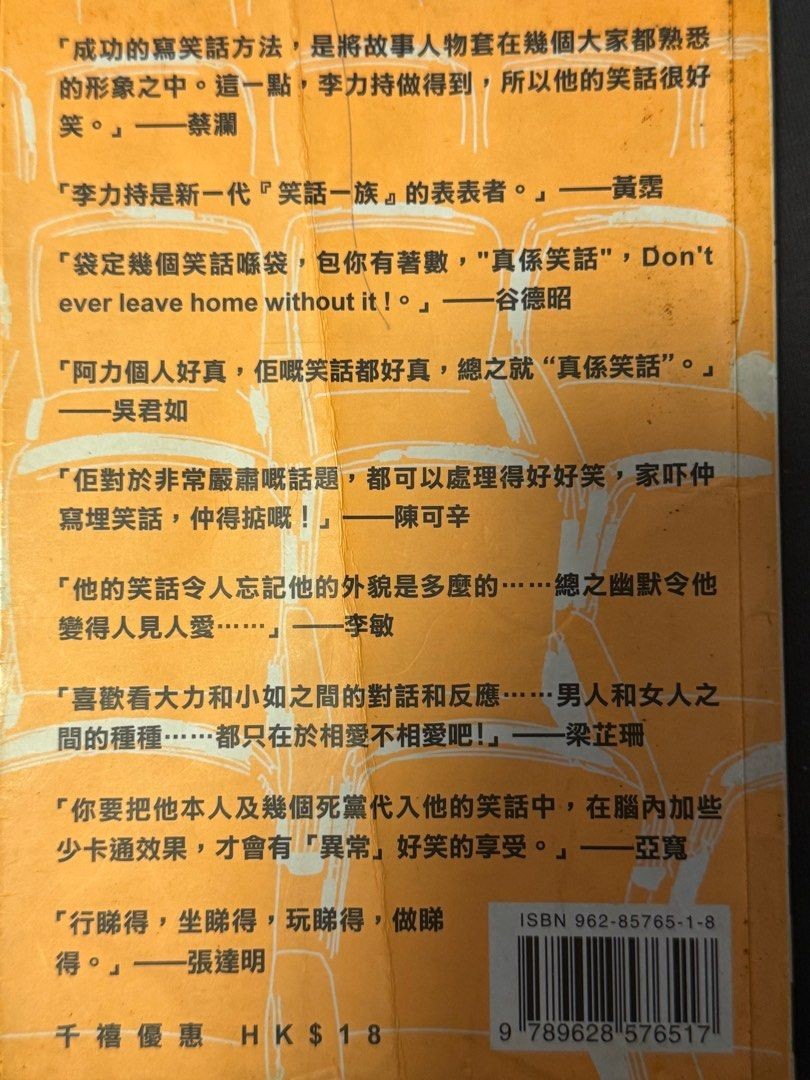 「成功的寫笑話方法，是將故事人物套在幾個大家都熟悉
的形象之中。這一點，李力持做得到，所以他的笑話很好
笑。」——蔡瀾
「李力持是新一代『笑話一族』的表表者。」——黃霑
「袋定幾個笑話喺袋，包你有著數，"真係笑話"，Don't
ever leave home without it !。」——谷德昭
「阿力個人好真，佢嘅笑話都好真，總之就“真係笑話”。」
——吳君如
「佢對於非常嚴肅嘅話題，都可以處理得好好笑，家吓仲
寫埋笑話，仲得掂嘅！」——陳可辛
「他的笑話令人忘記他的外貌是多麼的……總之幽默令他
變得人見人愛……」——李敏
「喜歡看大力和小如之間的對話和反應……男人和女人之
間的種種……都只在於相愛不相愛吧!」——梁芷珊
「你要把他本人及幾個死黨代入他的笑話中，在腦內加些
少卡通效果，才會有「異常」好笑的享受。」——亞寬
「行睇得，坐睇得，玩睇得，做睇
得。」——張達明
千禧優惠 HK$18
ISBN 962-85765-1-8
9 789628 576517